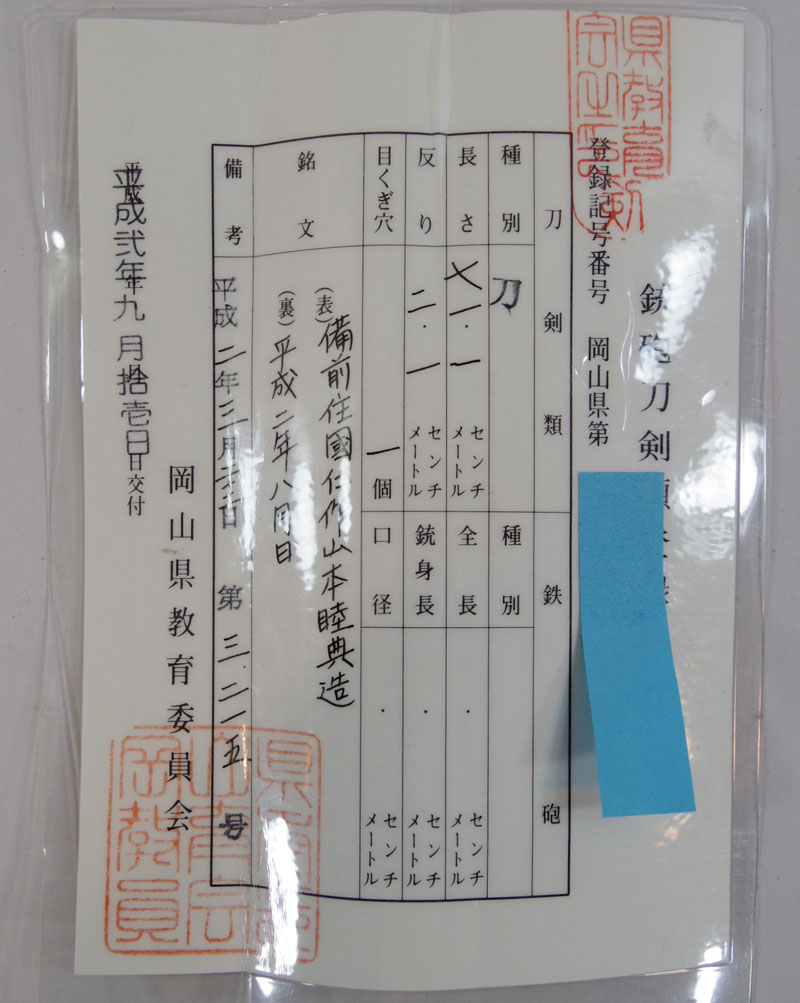 銃砲刀剣類
登録記号番号 岡山県第
刀剣類 鉄砲
種別 刀 種別
長さ 七一.一 センチメートル 全長 . センチメートル
反り 二.一 センチメートル 銃身長 . センチメートル
目くぎ穴 一個 口径 . センチメートル
銘文
(表)備前住國仁作山本睦典造
(裏)平成二年八月日
備考 平成二年三月 日 第三.二一五号
平成弐年九月拾壱日交付
岡山県教育委員会